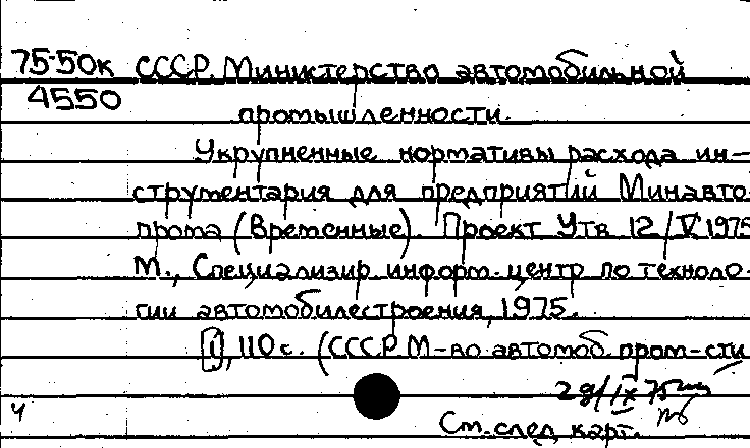 75-50к СССР. Министерство автомобильной
4550 промышленности.
Укрупненные нормативы расхода ин-
струментария для предприятий Минавто-
прома (Временные). Проект Утв. 12/V 1975
М., Специализир. информ. центр по техноло-
гии автомобилестроения, 1975.
[1], 110 с. (СССР. М-во автомоб. пром-сти
4
См. след. карт.